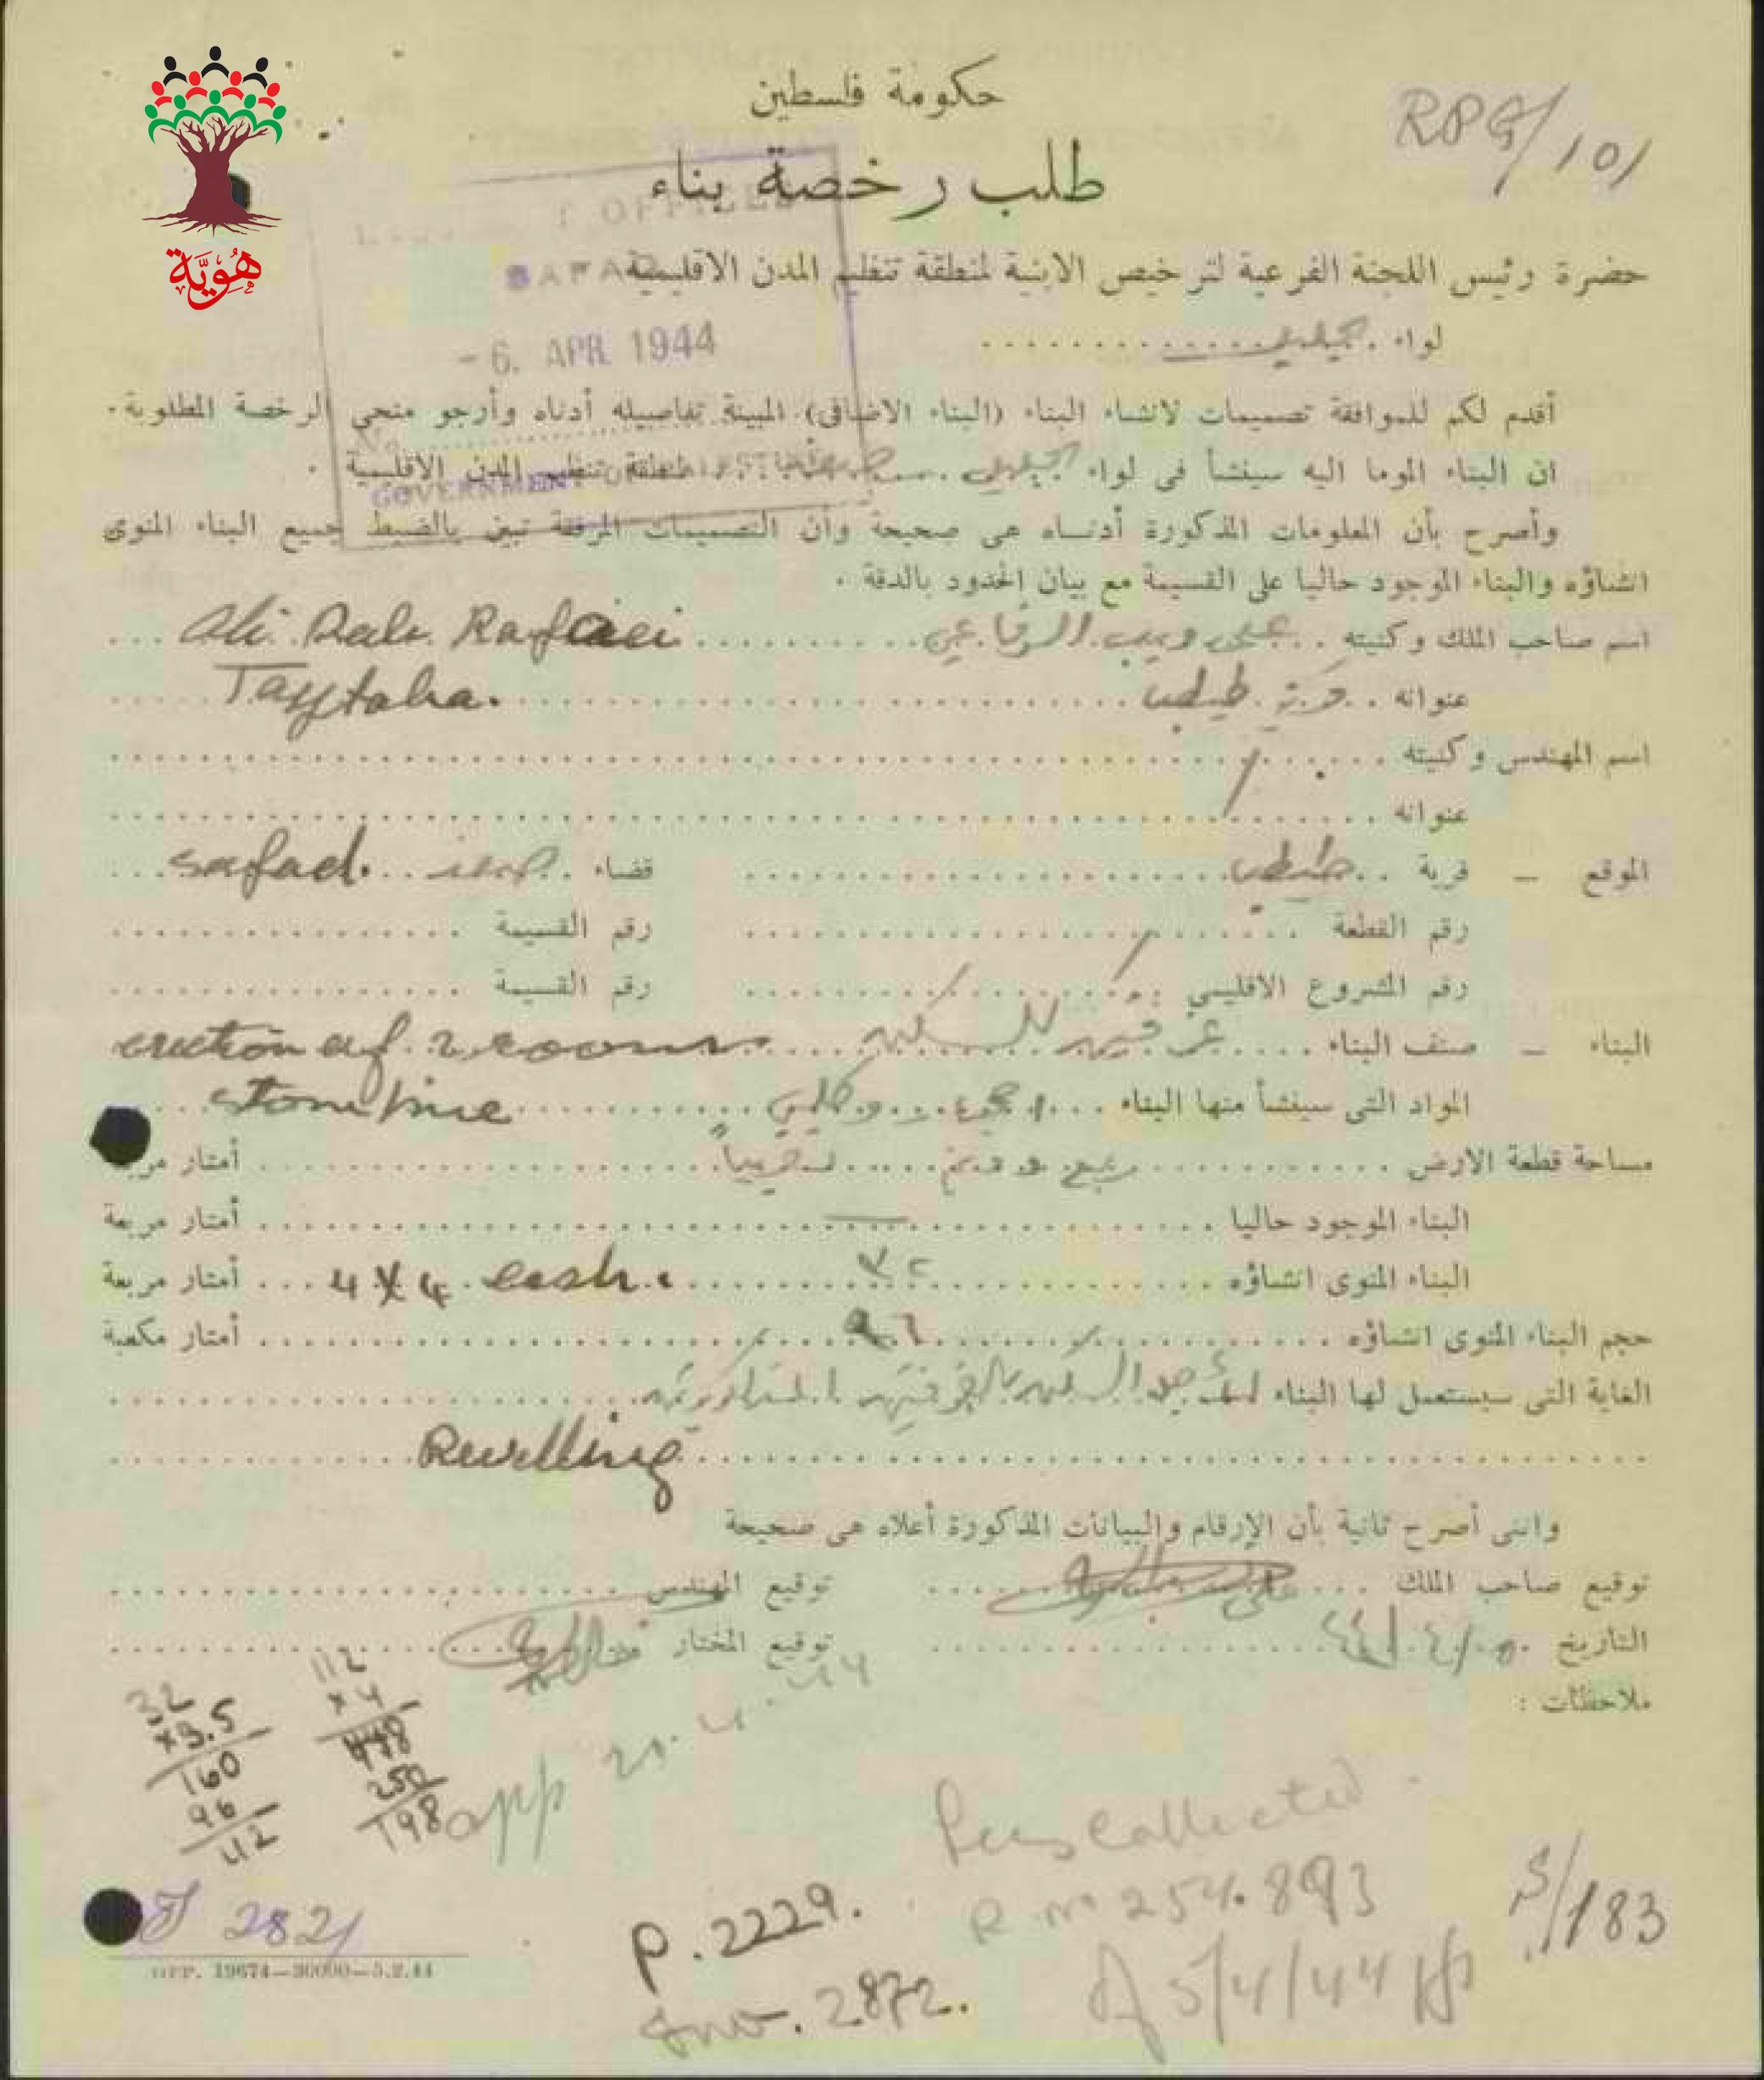 هُوِيَّة
حكومة فلسطين
RPG/101
طلب رخصة بناء
DISTRICT OFFICES
SAFAD
-6. APR 1944
No.
GOVERNMENT OF
حضرة رئيس اللجنة الفرعية لترخيص الابنية لمنطقة تنظيم المدن الاقليمية
لواء
أقدم لكم للموافقة تصميمات لانشاء البناء (البناء الاضافى) المبينة تفاصيله أدناه وأرجو منحى الرخصة المطلوبة.
ان البناء الموما اليه سينشأ فى لواء الجليل لمنطقة تنظيم المدن الاقليمية .
وأصرح بأن المعلومات المذكورة أدناه هى صحيحة وأن التصميمات المرفقة تبين بالضبط جميع البناء المنوى
انشاؤه والبناء الموجود حاليا على القسيمة مع بيان الحدود بالدقة .
اسم صاحب الملك وكنيته على ديب الرفاعي Ali Rafaei
عنوانه قرية طيطبا Taytaba.
اسم المهندس وكنيته
عنوانه
الموقع — قرية طيطبا قضاء صفد safad.
رقم القطعة رقم القسيمة
رقم المشروع الاقليمي رقم القسيمة
البناء — صنف البناء غرفتين للسكن erection of 2 rooms
المواد التى سينشأ منها البناء
مساحة قطعة الارض ربع دونم تقريباً أمتار مربعة
البناء الموجود حاليا — أمتار مربعة
البناء المنوى انشاؤه ٣٢ 4 x 4 each. أمتار مربعة
حجم البناء المنوى انشاؤه ٩٦ أمتار مكعبة
الغاية التى سيستعمل لها البناء
وانى أصرح ثانية بأن الارقام والبيانات المذكورة أعلاه هى صحيحة
توقيع صاحب الملك توقيع المهندس
التاريخ ٥/٤/٤٤ توقيع المختار
ملاحظات :
32
x3.5
160
96
112
112
x 4
448
250
198
app 20.4.44
Fees collected
R. No 254.893
of 5/4/44
S/183
P. 2229.
Inv. 2872.
2821
GPP. 19674—30000—5.2.44